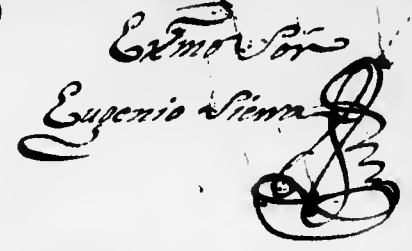 Exmo Sór
Eugenio Sierra